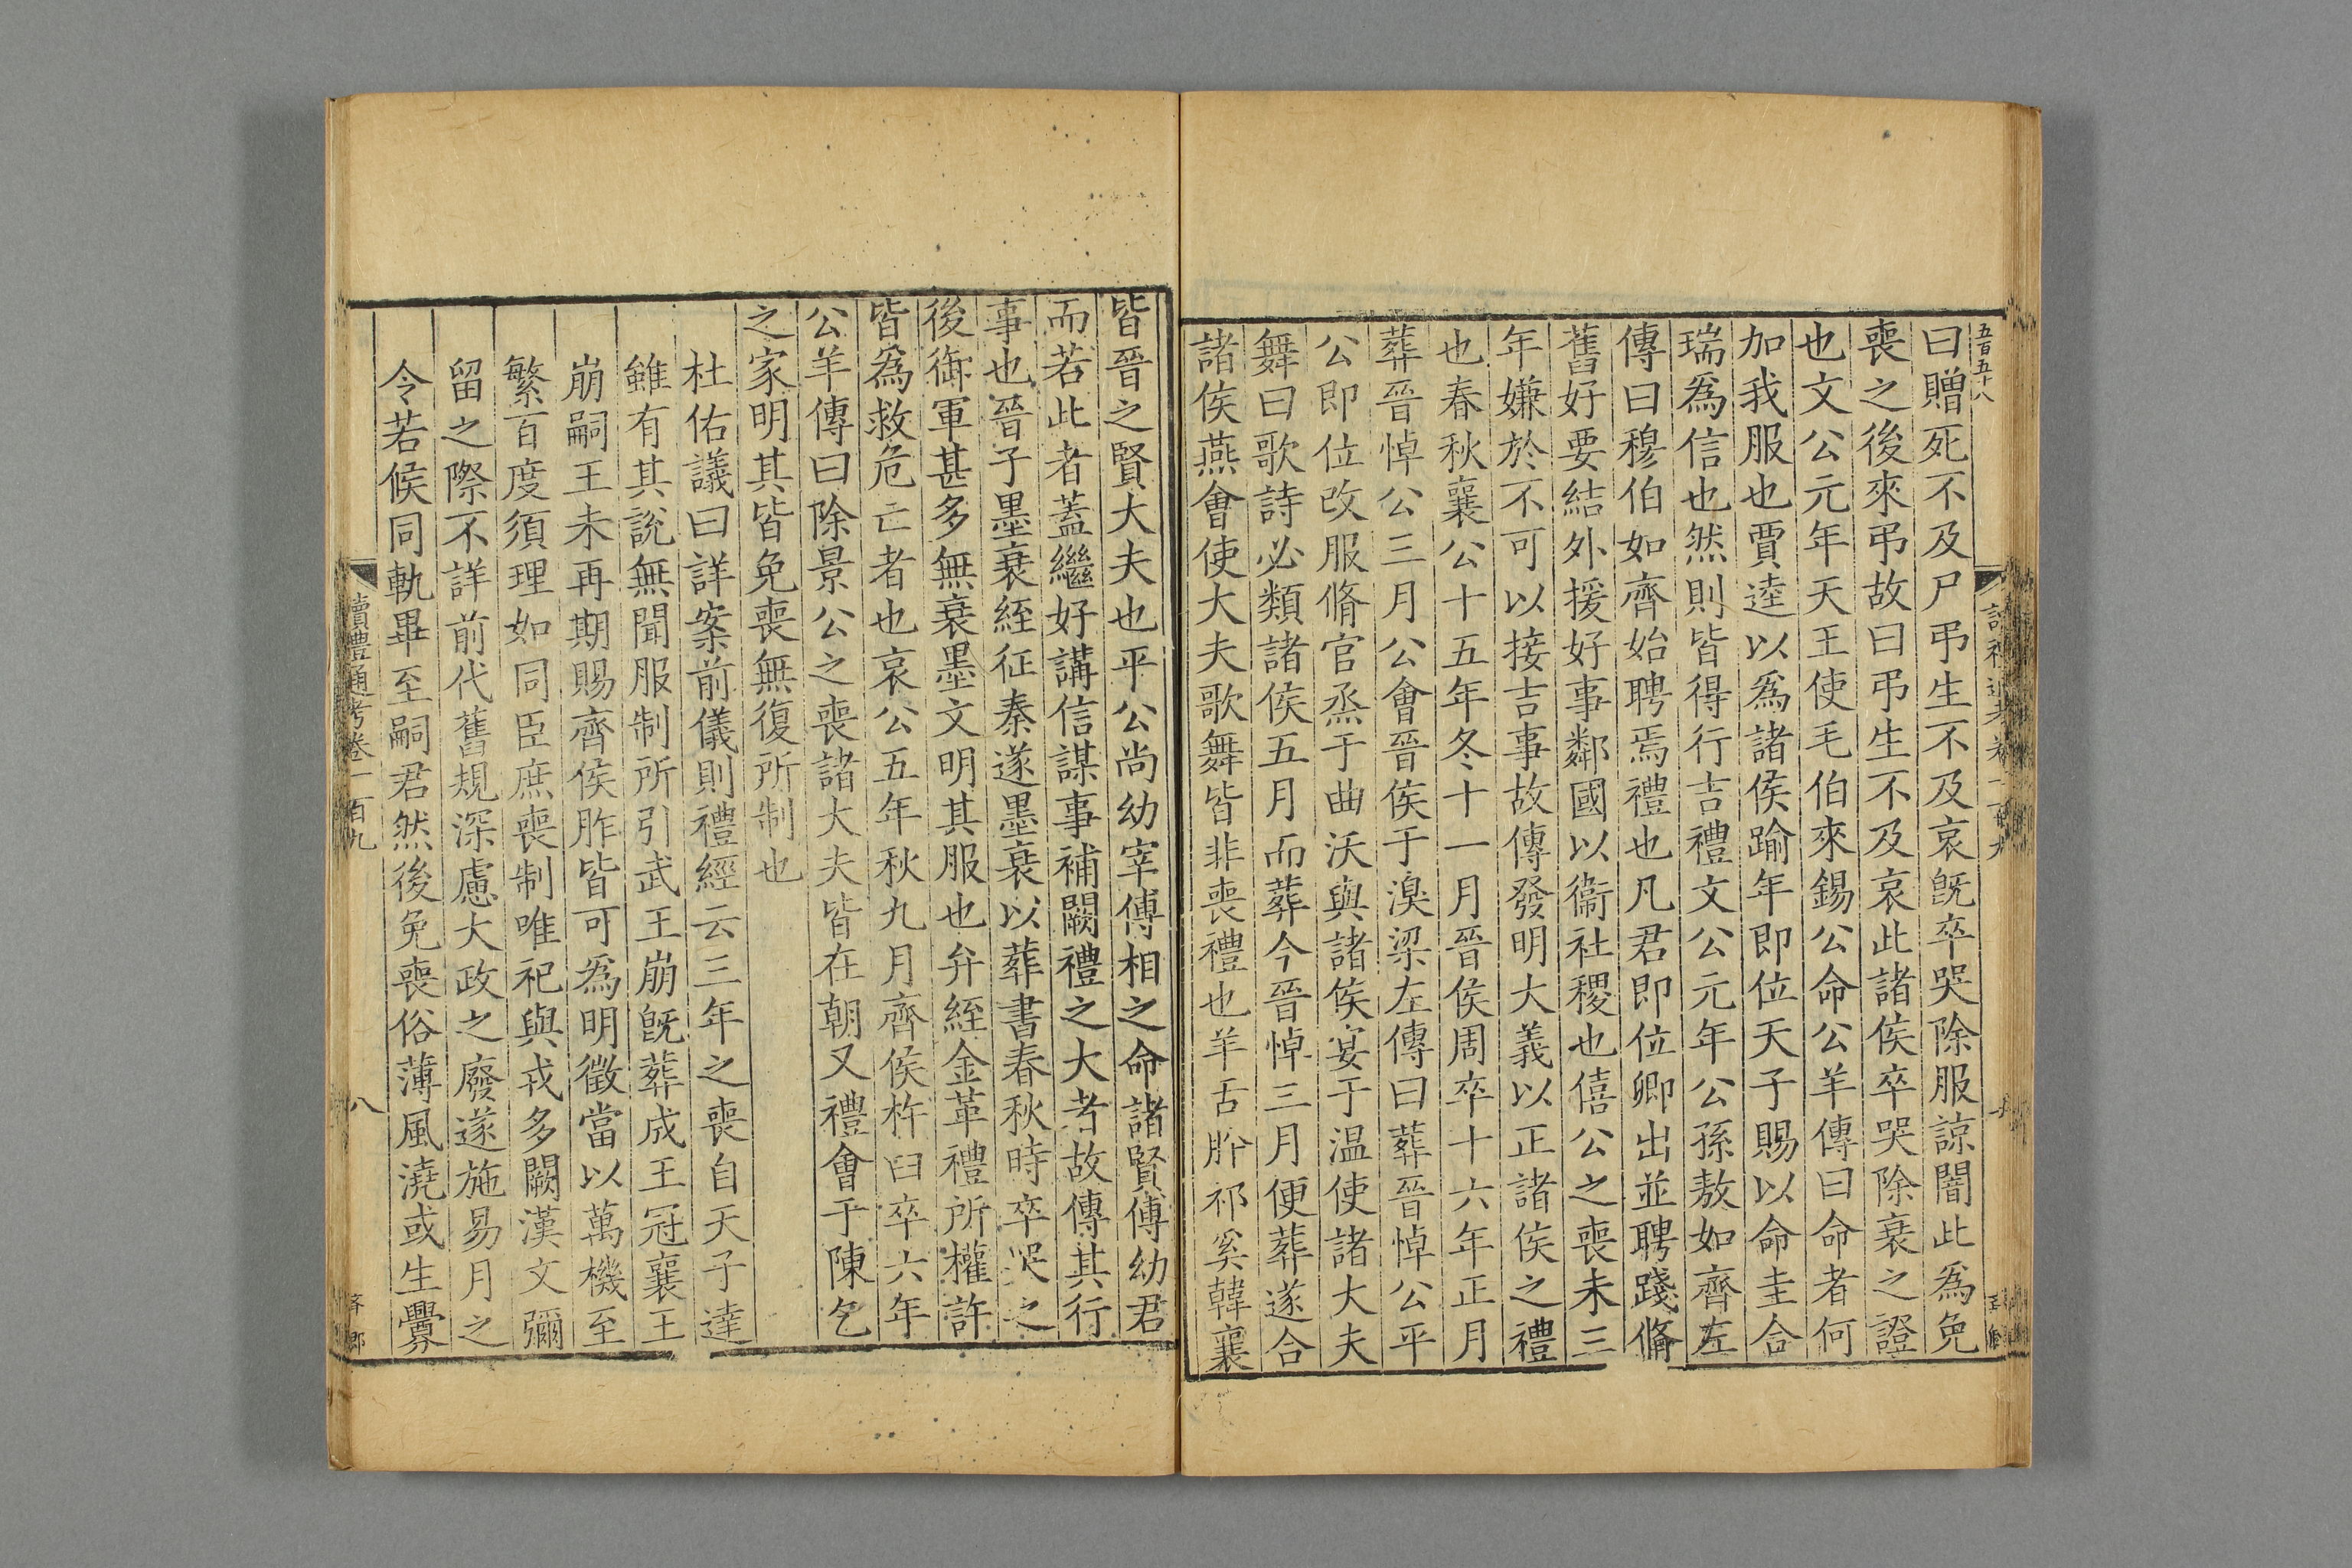 五百五十八
曰贈死不及尸弔生不及哀旣卒哭除服諒闇此爲免
喪之後來弔故曰弔生不及哀此諸侯卒哭除衰之證
也文公元年天王使毛伯來錫公命公羊傳曰命者何
加我服也賈逵以爲諸侯踰年即位天子賜以命圭合
瑞爲信也然則皆得行吉禮文公元年公孫敖如齊左
傳曰穆伯如齊始聘焉禮也凡君即位卿出並聘踐脩
舊好要結外援好事鄰國以衞社稷也僖公之喪未三
年嫌於不可以接吉事故傳發明大義以正諸侯之禮
也春秋襄公十五年冬十一月晉侯周卒十六年正月
葬晉悼公三月公會晉侯于湨梁左傳曰葬晉悼公平
公即位改服脩官烝于曲沃與諸侯宴于温使諸大夫
舞曰歌詩必類諸侯五月而葬今晉悼三月便葬遂合
諸侯燕會使大夫歌舞皆非喪禮也羊舌肸祁奚韓襄
皆晉之賢大夫也平公尚幼宰傅相之命諸賢傅幼君
而若此者蓋繼好講信謀事補闕禮之大者故傳其行
事也晉子墨衰絰征秦遂墨衰以葬書春秋時卒哭之
後御軍甚多無衰墨文明其服也弁絰金革禮所權許
皆爲救危亡者也哀公五年秋九月齊侯杵臼卒六年
公羊傳曰除景公之喪諸大夫皆在朝又禮會于陳乞
之家明其皆免喪無復所制也
杜佑議曰詳案前儀則禮經云三年之喪自天子達
雖有其說無聞服制所引武王崩旣葬成王冠襄王
崩嗣王未再期賜齊侯胙皆可爲明徵當以萬機至
繁百度須理如同臣庶喪制唯祀與戎多闕漢文彌
留之際不詳前代舊規深慮大政之廢遂施易月之
令若候同軌畢至嗣君然後免喪俗薄風澆或生釁
讀禮通考卷一百九
八